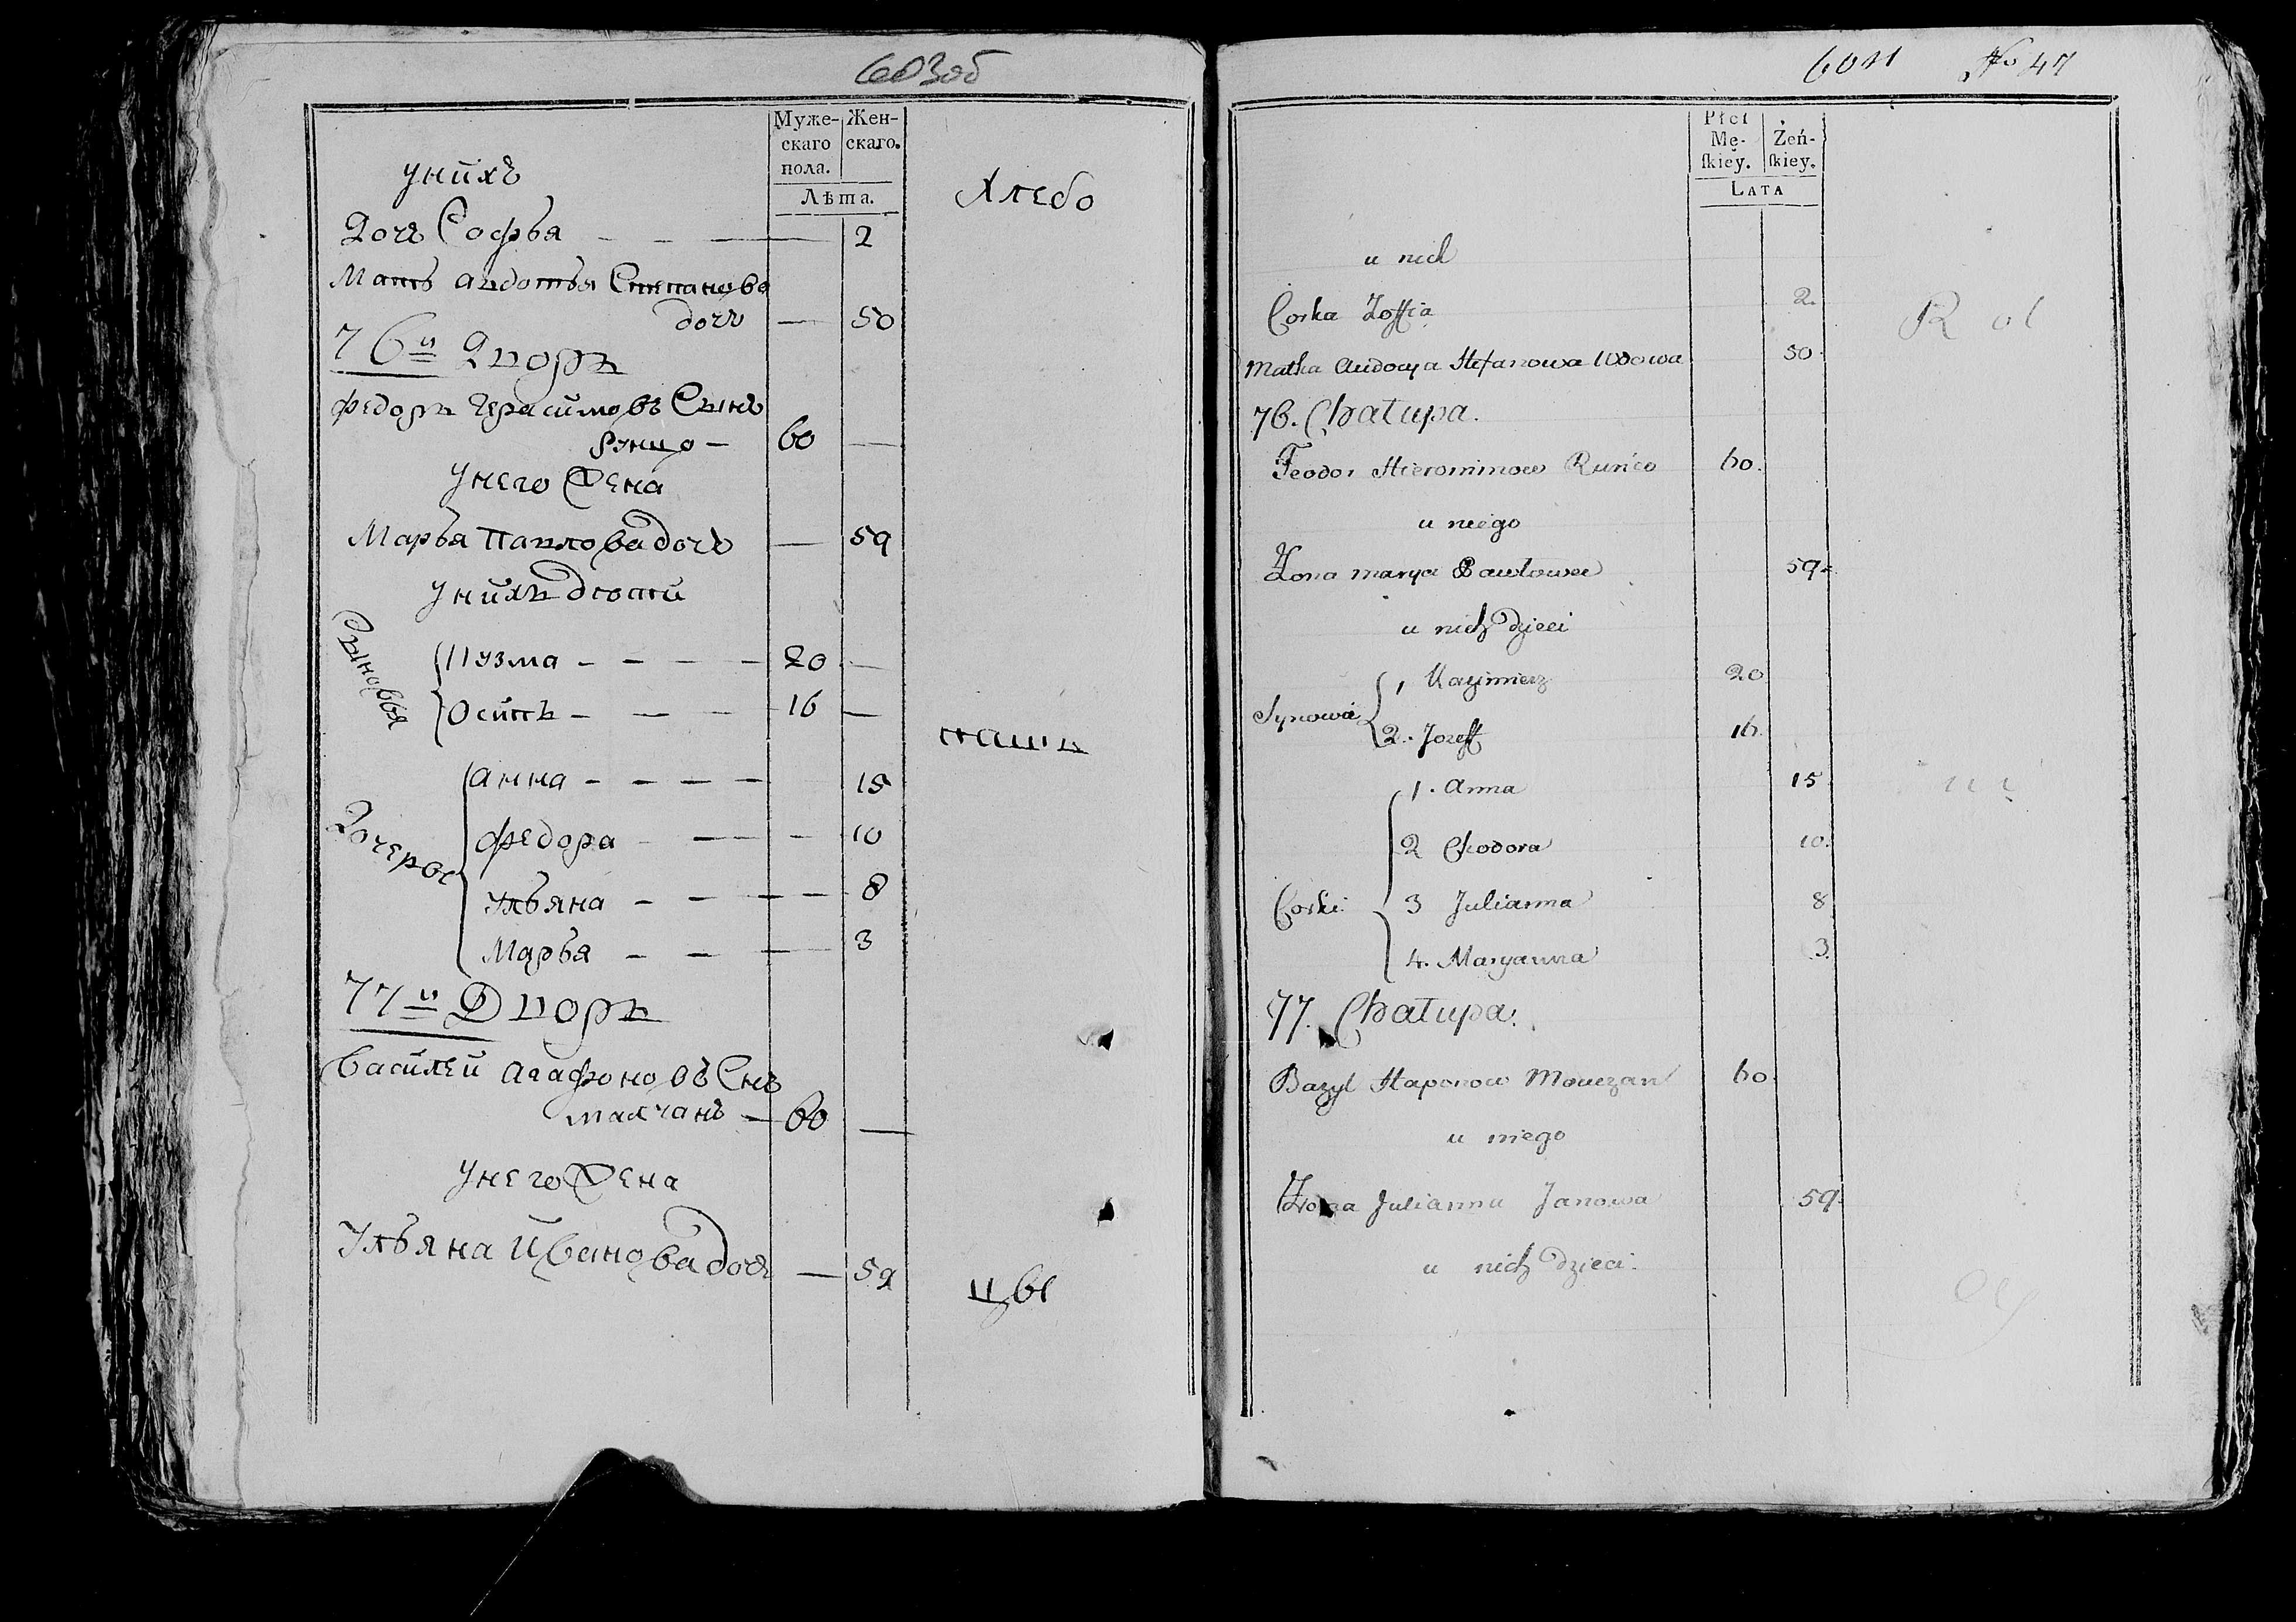 603об
Муже- Жен-
скаго скаго.
пола.
Лѣта.
Хлебо
унихъ
Дочь Софья 2
Мать авдотья Степанова
дочь 50
76й Дворъ
Федоръ Герасимовъ Сынъ
Рунцо 60
унего Жена
Марья Павлова дочь 59
унихъ дѣти
Сыновья
Кузма 20
Осипъ 16
паш
Дочеры
анна 15
Федора 10
Ульяна 8
Марья 3
77й Дворъ
Василей агафоновъ Снъ
малчанъ 60
унего Жена
Ульяна Иванова дочь 59
цы
604 № 47
Płci
Mę- Żeń-
ſkiey. ſkiey.
LATA
u nich
Corka Zoffia 2.
Rol
Matka Audocya Stefanowa Wdowa 50.
76. Chałupa.
Feodor Hieronimow Runco 60.
u niego
Zona Marya Pawłowa 59.
u nich dzieci
Synowie
1 Kazimierz 20
2. Jozeff 16.
1. Anna 15
ni
2 Chodora 10.
Corki
3 Julianna 8
4. Maryanna 3.
77. Chałupa.
Bazyl Haponow Mouczan 60.
u niego
Zona Julianna Janowa 59.
u nich dzieci.
cy